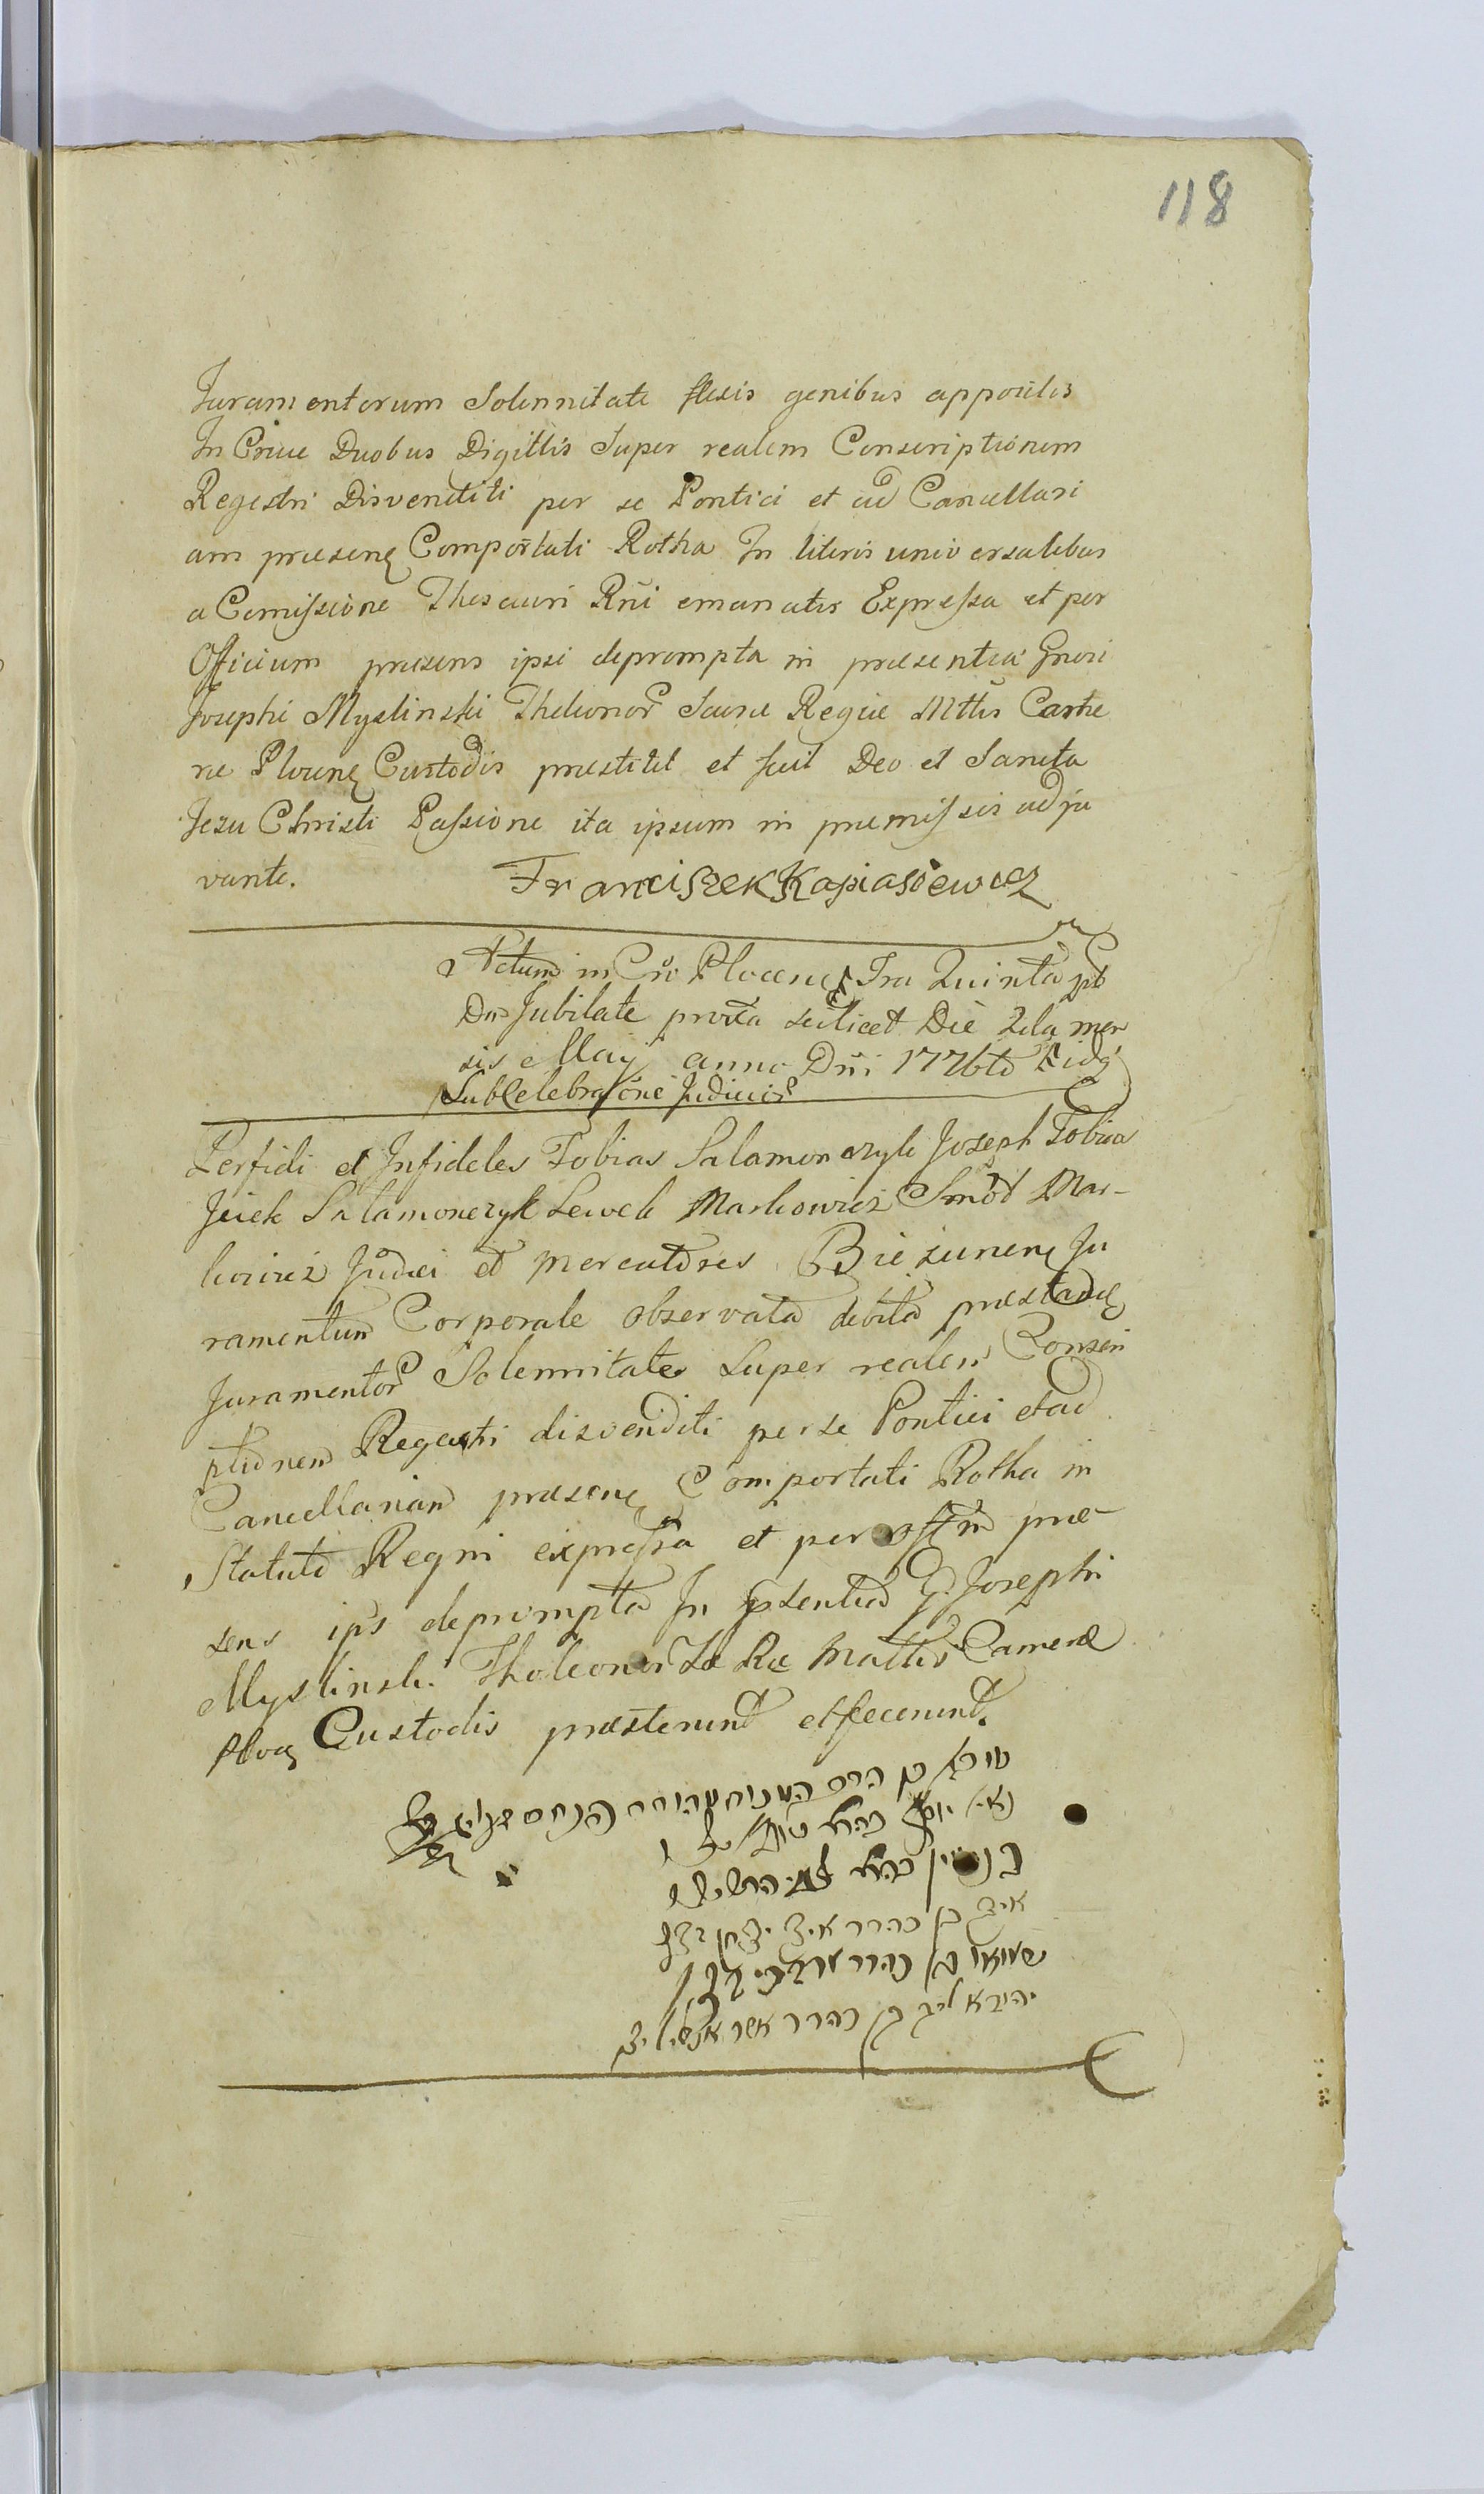 118
Juramentorum Solennitate flexis genibus appositis
In Cruce Duobus Digittis Super realem Conscriptionem
Regestri Disvenditi per se Pontici et ad Cancellari
am præsenę Comportati Rotha In literis universalibus
a Comissione Thesauri Rni emanatis Expressa et per
Officium præsens ipsi deprompta in præsentia Gnosi
Josephi Myslinski Theleonor Sacræ Regiæ Mttis Carthe
ræ Plocenę Custodis præstitit et fecit Deo et Sancta
Jezu Christi Passione ita ipsum in præmissis adju
vante. Franciszek Kapiasiewicz
Actum in Plocenę Fra Quinta pt
Dnś Jubilate proxia scilicet Die 2da men
sis Maij anno Dni 1776to
Sub Celebratione Judicior
Perfidi et Infideles Tobias Salamonczyk Jozeph Tobias
Jcick Salamonczyk Lewek Markowicz Smol Mar-
kowicz Judæi et Mercatores Biezunenę Ju
ramentum Corporale observata debita præstadę
Juramentor Solennitate Super realem Conscri
ptionem Regestri disvenditi per se Pontici et ad
Cancellariam præsenę Comportati Rotha in
Statuto Regni expressa et per offm præ-
sens ips deprompta In psentia G. Josephi
Myslinski Theleonor Sæ Ræ Mattis Cameræ
Ploę Custodis præsterunt et fecerunt.
טובי' בן
יוסף
בן כהרר איצ
שמואל בן כהרר מרדכי
יהודא ליב בן כהרר אשר